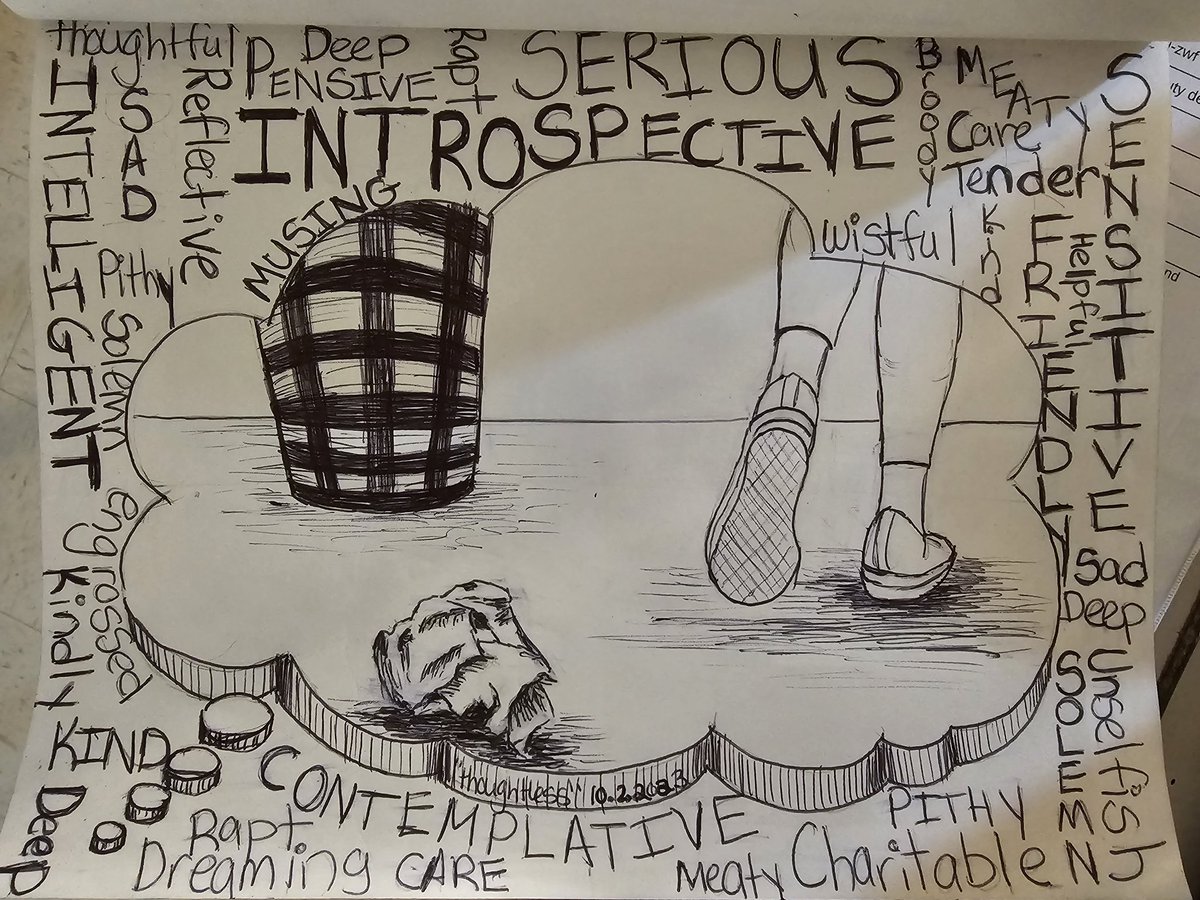 thoughtful
Deep
PENSIVE
Rapt
SERIOUS
Broody
MEATY
SENSITIVE
INTELLIGENT
SAD
Reflective
INTROSPECTIVE
Care
Tender
MUSING
wistful
Kind
FRIENDLY
Helpful
Pithy
Solemn
engrossed
Kindly
Sad
Deep
unselfish
SOLEMN
KIND
Deep
CONTEMPLATIVE
"thoughtless" 10.2.2023
PITHY
Rapt
Dreaming
CARE
Meaty
Charitable